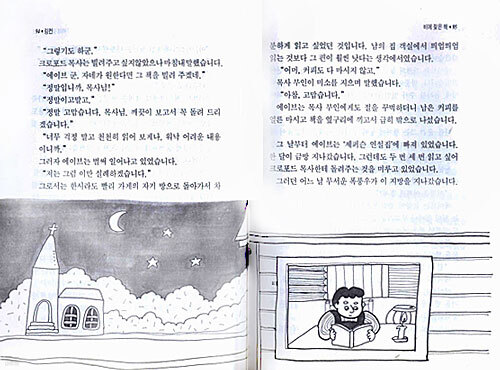 94 • 링컨
"그렇기도 하군."
크로포드 목사는 빌려주고 싶지않았으나 마침내 말했습니다.
"에이브 군, 자네가 원한다면 그 책을 빌려 주겠네."
"정말입니까, 목사님!"
"정말이고말고."
"정말 고맙습니다, 목사님. 깨끗이 보고서 꼭 돌려 드리
겠습니다."
"너무 걱정 말고 천천히 읽어 보게나. 워낙 어려운 내용
이니까."
그러자 에이브는 벌써 일어나고 있었습니다.
"저는 그럼 이만 실례하겠습니다."
그로서는 한시라도 빨리 가게의 자기 방으로 돌아가서 차
비에 젖은 책 • 95
분하게 읽고 싶었던 것입니다. 남의 집 객실에서 띄엄띄엄
읽는 것보다 그 편이 훨씬 낫다는 생각에서였습니다.
"어머, 커피도 다 마시지 않고."
목사 부인이 미소를 지으며 말했습니다.
"아참, 고맙습니다."
에이브는 목사 부인에게도 절을 꾸벅하더니 남은 커피를
얼른 마시고 책을 옆구리에 끼고서 급히 밖으로 나섰습니다.
그 날부터 에이브는 '셰퍼슨 연설집'에 빠져 있었습니다.
한 달이 금방 지나갔습니다. 그런데도 두 번 세 번 읽고 싶어
크로포드 목사한테 돌려주는 것을 미루고 있었습니다.
그러던 어느 날 무서운 폭풍우가 이 지방을 지나갔습니다.